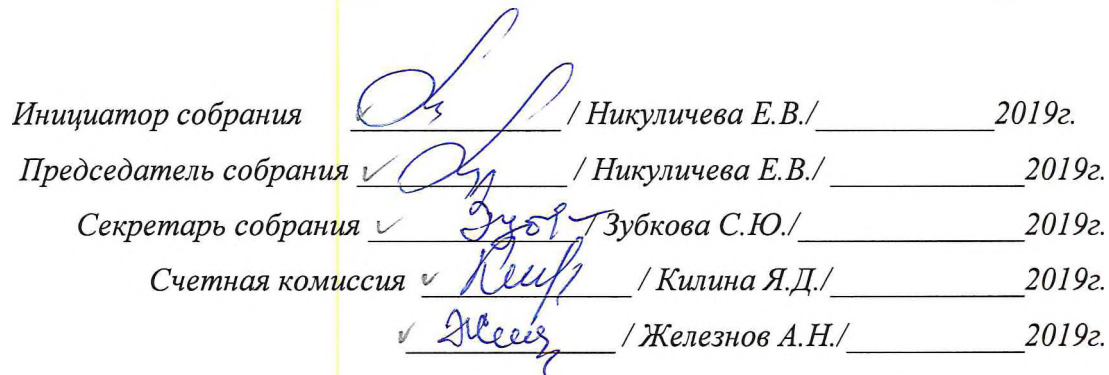 Инициатор собрания ____________ / Никуличева Е.В./____________2019г.
Председатель собрания ____________ / Никуличева Е.В./____________2019г.
Секретарь собрания ____________ / Зубкова С.Ю./____________2019г.
Счетная комиссия ____________ / Килина Я.Д./____________2019г.
____________ / Железнов А.Н./____________2019г.